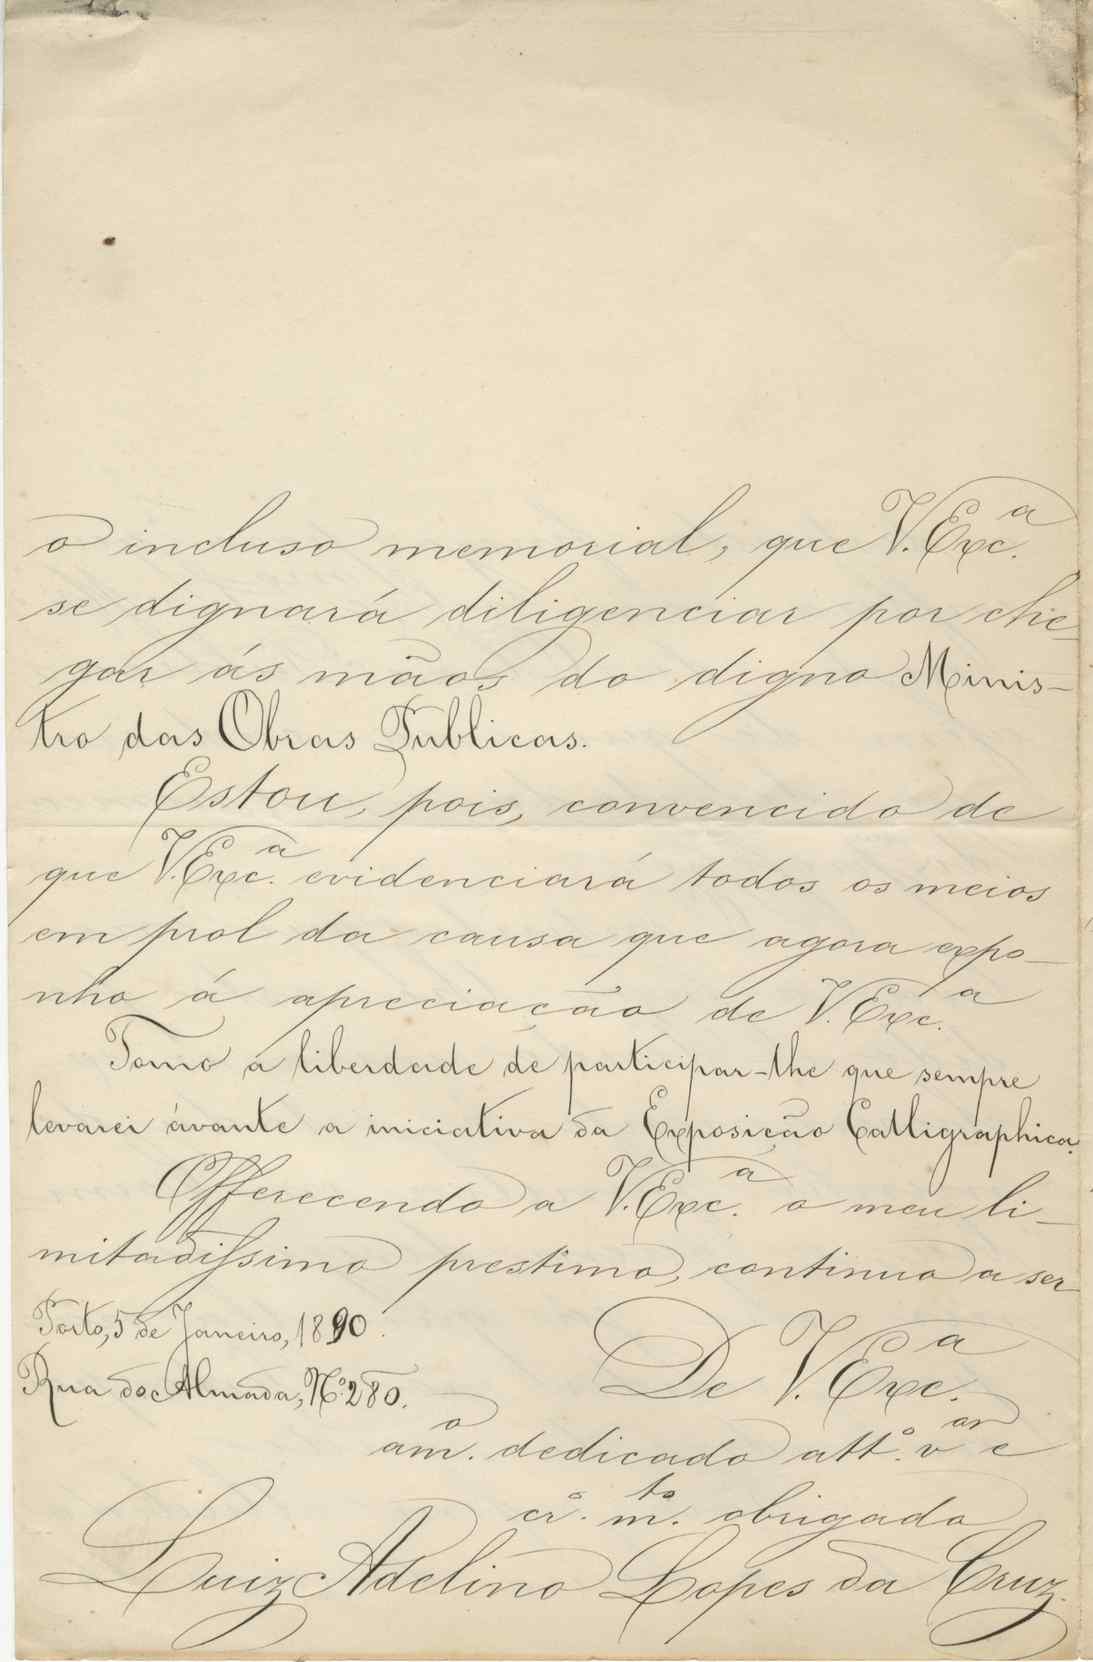 o incluso memorial, que V. Exc.ª
se dignará diligenciar por che-
gar ás mãos do digno Minis-
tro das Obras Publicas.
Estou, pois, convencido de
que V. Exc.ª evidenciará todos os meios
em prol da causa que agora expo-
nho á apreciação de V. Exc.ª
Tomo a liberdade de participar-lhe que sempre
levarei ávante a iniciativa da Exposição Calligraphica.
Offerecendo a V. Exc.ª o meu li-
mitadissimo prestimo, continuo a ser
Porto, 5 de Janeiro, 1890.
De V. Exc.ª
Rua do Almada, Nº 280.
am.º dedicado att.º v.ºr e
cr.º m.to obrigado
Luiz Adelino Lopes da Cruz.